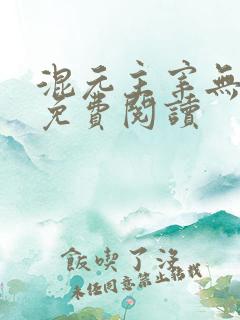 混元主宰無
免費閱讀
飯喫了沒
未經同意禁止轉載